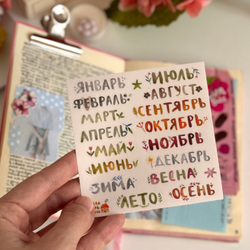 ЯНВАРЬ
ФЕВРАЛЬ
МАРТ
АПРЕЛЬ
МАЙ
ИЮНЬ
ЗИМА
ЛЕТО
ИЮЛЬ
АВГУСТ
СЕНТЯБРЬ
ОКТЯБРЬ
НОЯБРЬ
ДЕКАБРЬ
ВЕСНА
ОСЕНЬ